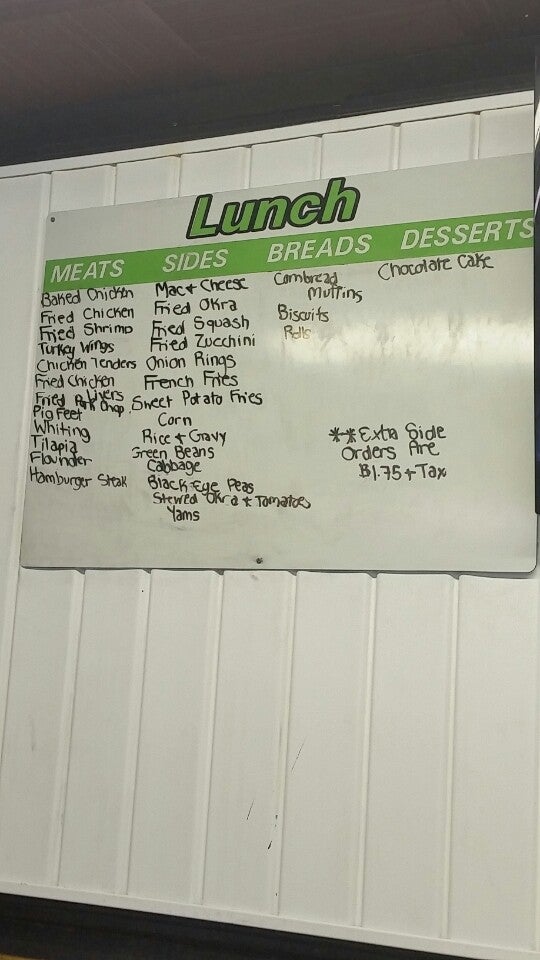 Lunch
MEATS
Baked Chicken
Fried Chicken
Fried Shrimp
Turkey Wings
Chicken Tenders
Fried Chicken
Livers
Fried Pork Chop
Pig Feet
Whiting
Tilapia
Flounder
Hamburger Steak
SIDES
Mac + Cheese
Fried Okra
Fried Squash
Fried Zucchini
Onion Rings
French Fries
Sweet Potato Fries
Corn
Rice + Gravy
Green Beans
Cabbage
Black-Eye Peas
Stewed Okra + Tomatoes
Yams
BREADS
Cornbread
Muffins
Biscuits
Rolls
DESSERTS
Chocolate Cake
**Extra Side
Orders Are
$1.75 + Tax